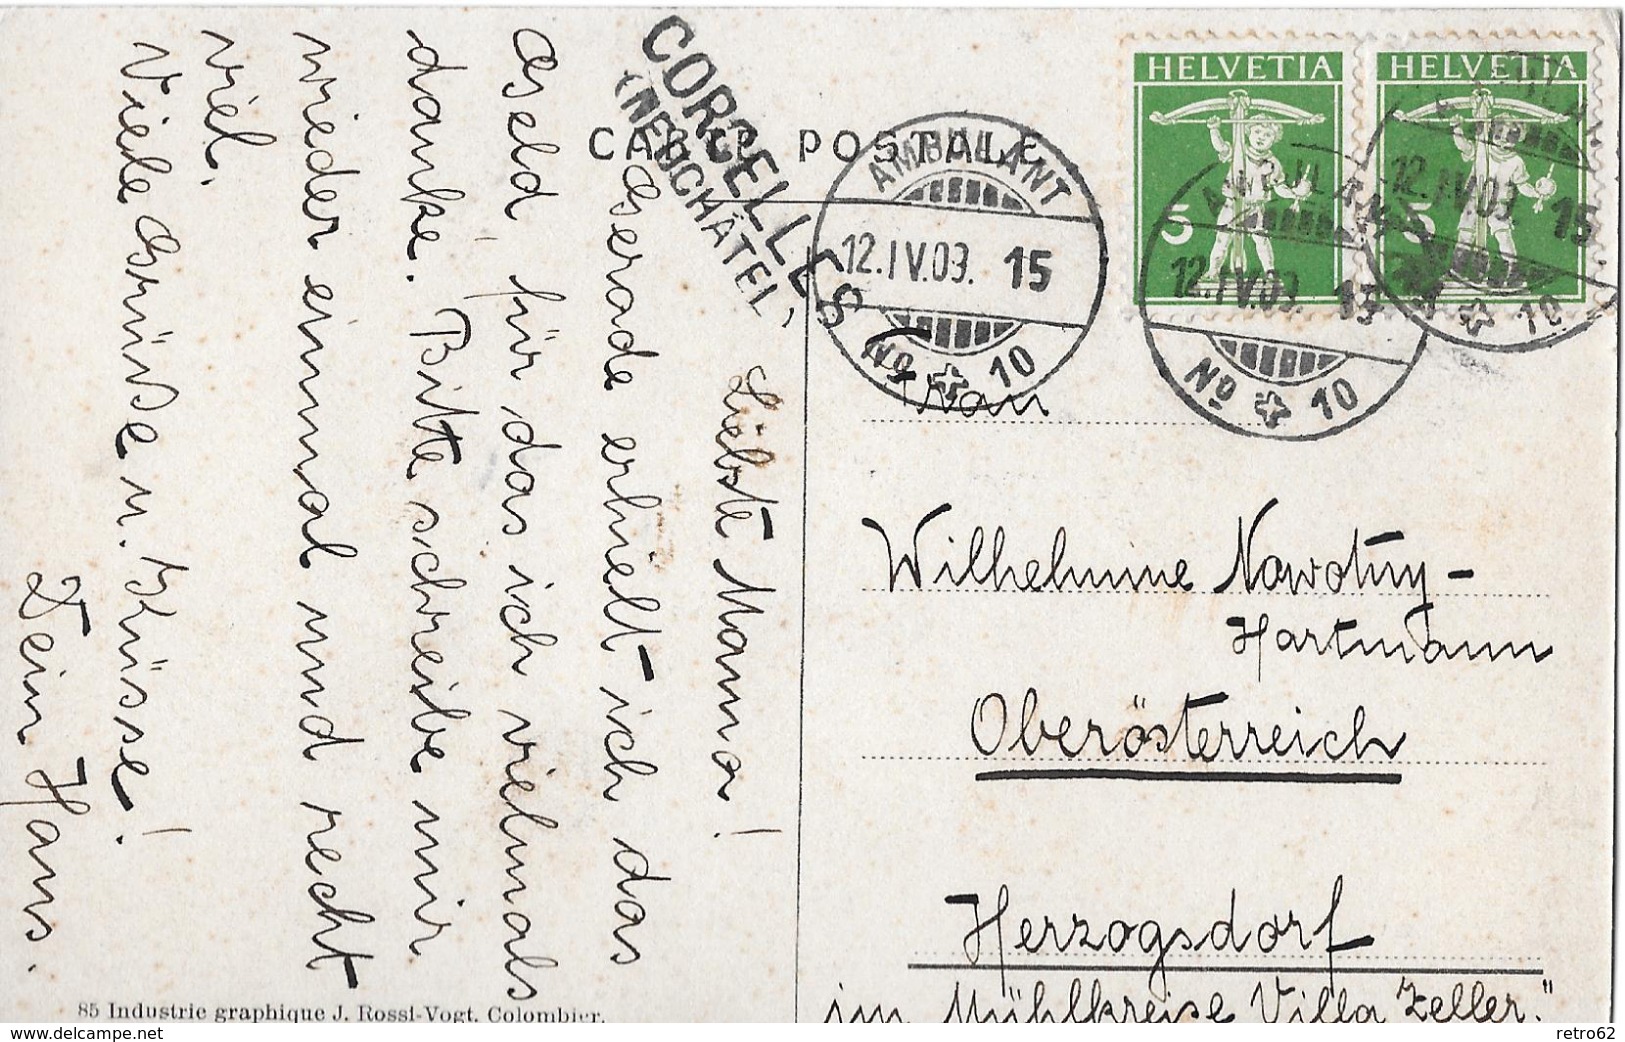 CARTE POSTALE
CORCELLES
(NEUCHÂTEL)
HELVETIA
5
HELVETIA
5
AMBULANT
12.IV.09. 15
No 10
AMBULANT
12.IV.09. 15
No 10
AMBULANT
12.IV.09. 15
10
Liebste Mama!
Gerade erhielt ich das
Geld, für das ich vielmals
danke. Bitte schreibe mir
wieder einmal und recht
viel.
Viele Grüße u. Küsse!
Dein Hans.
Frau
Wilhelmine Nowotny-
Hartmann
Oberösterreich
Herzogsdorf
im Mühlkreise Villa Zeller."
85 Industrie graphique J. Rossi-Vogt. Colombier.
retro62
http://www.delcampe.net